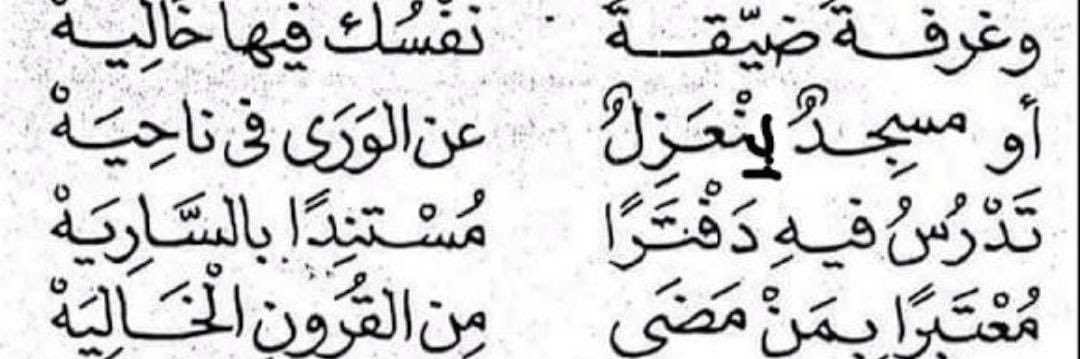 وغرفة ضيّقة نفسُك فيها خَالِيهْ
أو مسجِدٌ بمَعزِلٌ عن الوَرَى فى ناحِيَهْ
تَدْرُسُ فيهِ دَفْتَرًا مُسْتنِدًا بالسَّارِيَهْ
مُعْتَبِرًا بمَنْ مَضَى مِن القُرُونِ الْخَالِيَهْ